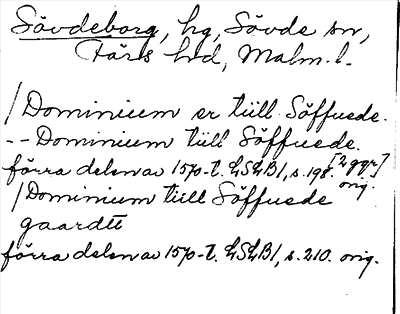 Sövdeborg, hg, Sövde sn,
Färs hrd, Malm. l.
/Dominium er tiill Söffuede.
-- Dominium tiill Söffuede.
förra delen av 1570-t. LSLB1, s. 198. [2 ggr]
orig.
/Dominium tiill Söffuede
gaardtt
förra delen av 1570-t. LSLB1, s. 210. orig.